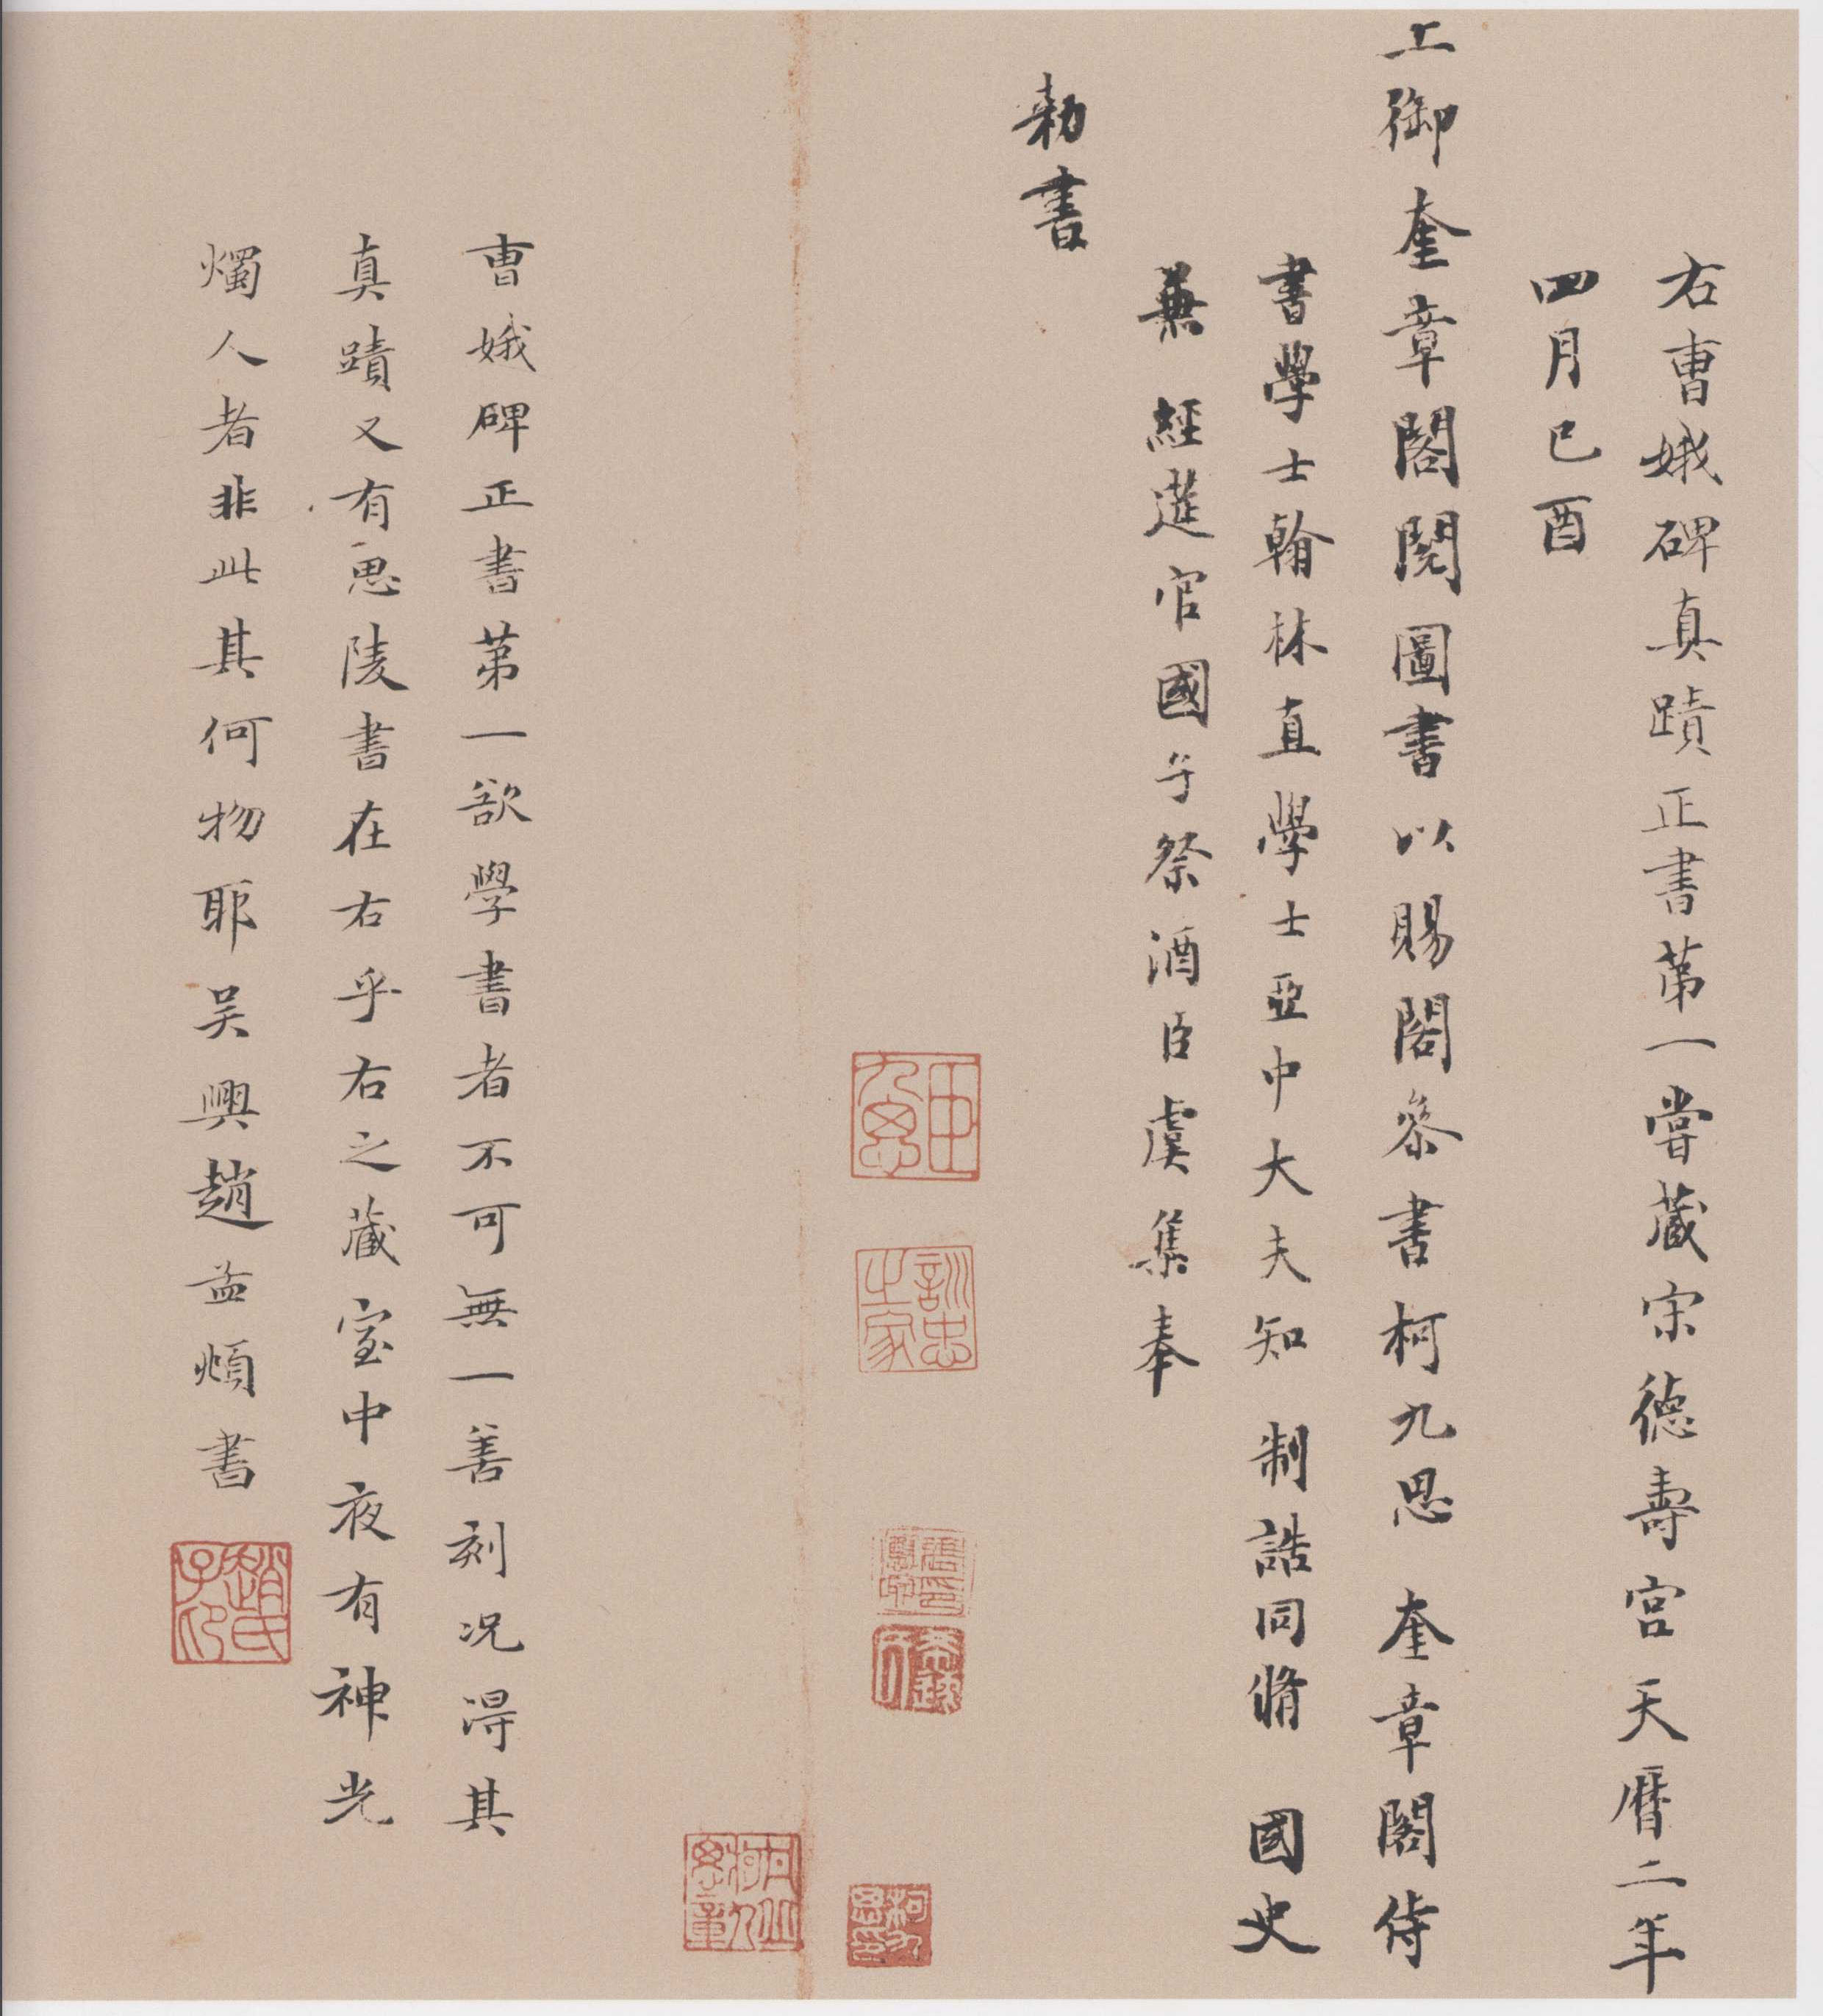 右曹娥碑真蹟正書第一嘗藏宋德壽宮天曆二年
四月己酉
上御奎章閣閱圖書以賜閣參書柯九思奎章閣侍
書學士翰林直學士亞中大夫知 制誥同脩 國史
兼 經筵官國子祭酒臣虞集奉
勑書
訓忠之家
柯九思印
曹娥碑正書第一欲學書者不可無一善刻况得其
真蹟又有思陵書在右乎右之藏室中夜有神光
燭人者非此其何物耶吴興趙孟頫書
趙氏子昂